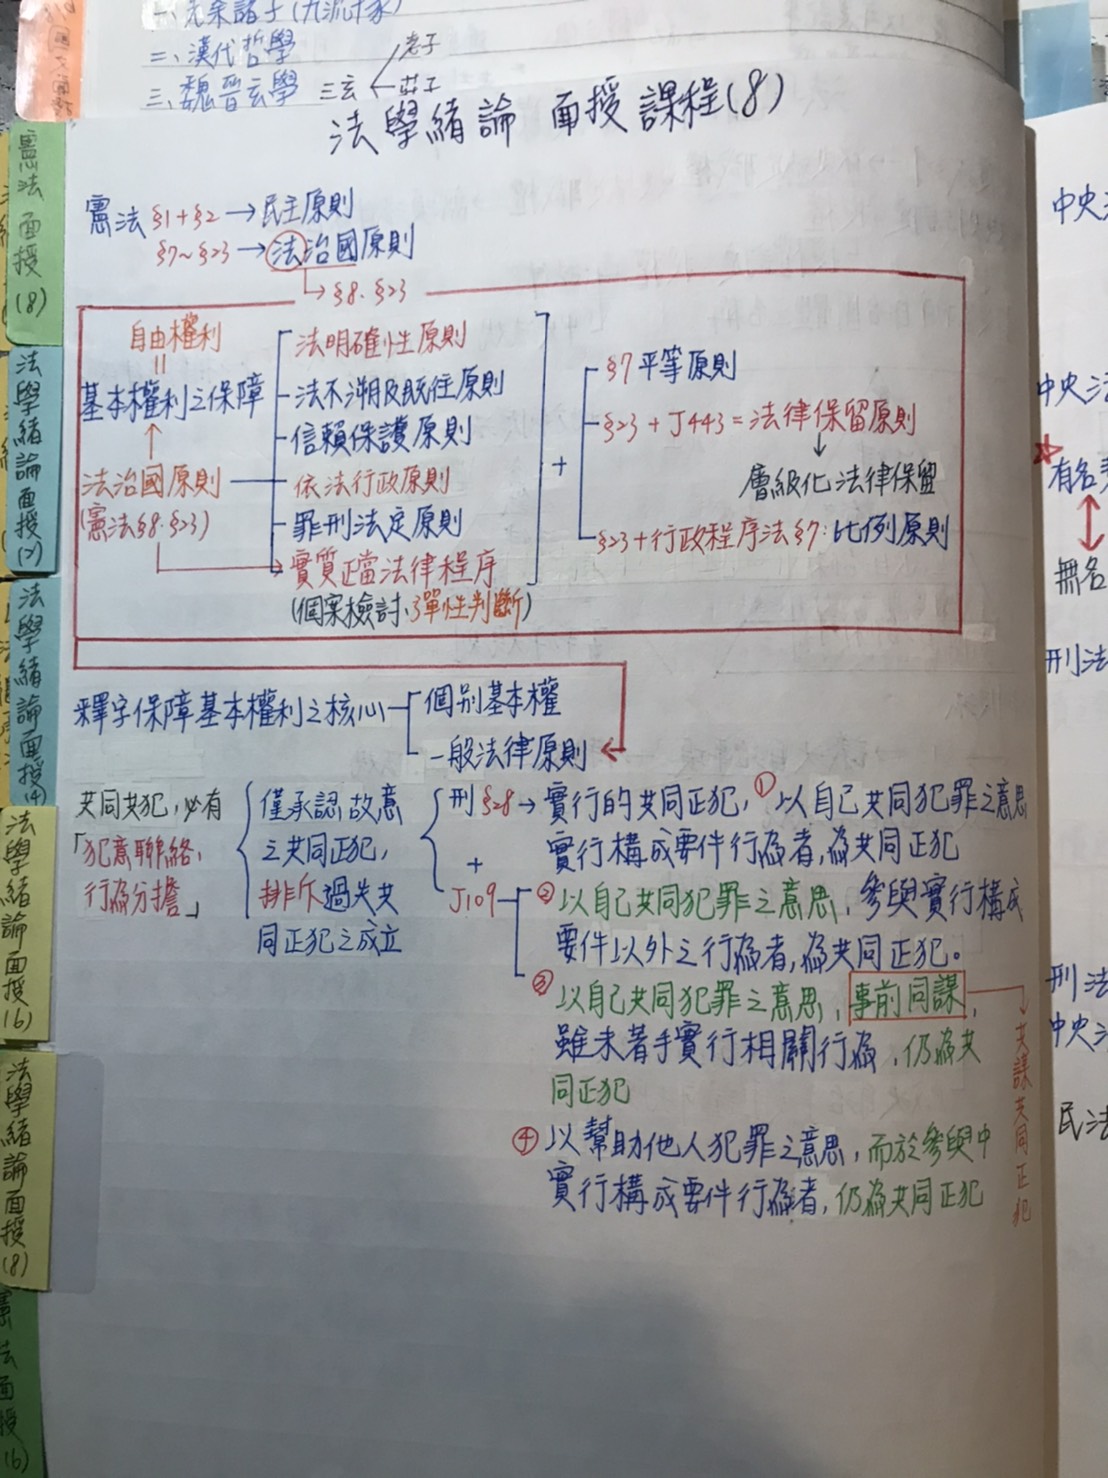 二、漢代哲學
三、魏晉玄學 三玄 老子
莊子
法學緒論 面授課程(8)
憲法 §1+§2→民主原則
§7~§23→法治國原則
→§8、§23
自由權利
=
基本權利之保障
↑
法治國原則
(憲法§8、§23)
法明確性原則
法不溯及既往原則
信賴保護原則
依法行政原則
罪刑法定原則
實質正當法律程序
(個案檢討、彈性判斷)
+
§7平等原則
§23+J443=法律保留原則
↓
層級化法律保留
§23+行政程序法§7:比例原則
釋字保障基本權利之核心
個別基本權
一般法律原則
共同共犯,必有
「犯意聯絡、
行為分擔」
僅承認故意
之共同正犯,
排斥過失共
同正犯之成立
刑§28→實行的共同正犯,①以自己共同犯罪之意思
實行構成要件行為者,為共同正犯
+
J109
②以自己共同犯罪之意思,參與實行構成
要件以外之行為者,為共同正犯。
③以自己共同犯罪之意思,事前同謀,
雖未著手實行相關行為,仍為共
同正犯
共謀共同正犯
④以幫助他人犯罪之意思,而於參與中
實行構成要件行為者,仍為共同正犯
憲法面授(8)
法學緒論面授(2)
法學緒論面授(4)
法學緒論面授(6)
法學緒論面授(8)
憲法面授(6)
中央
中央
有名
無名
刑法
刑法
中央
民法